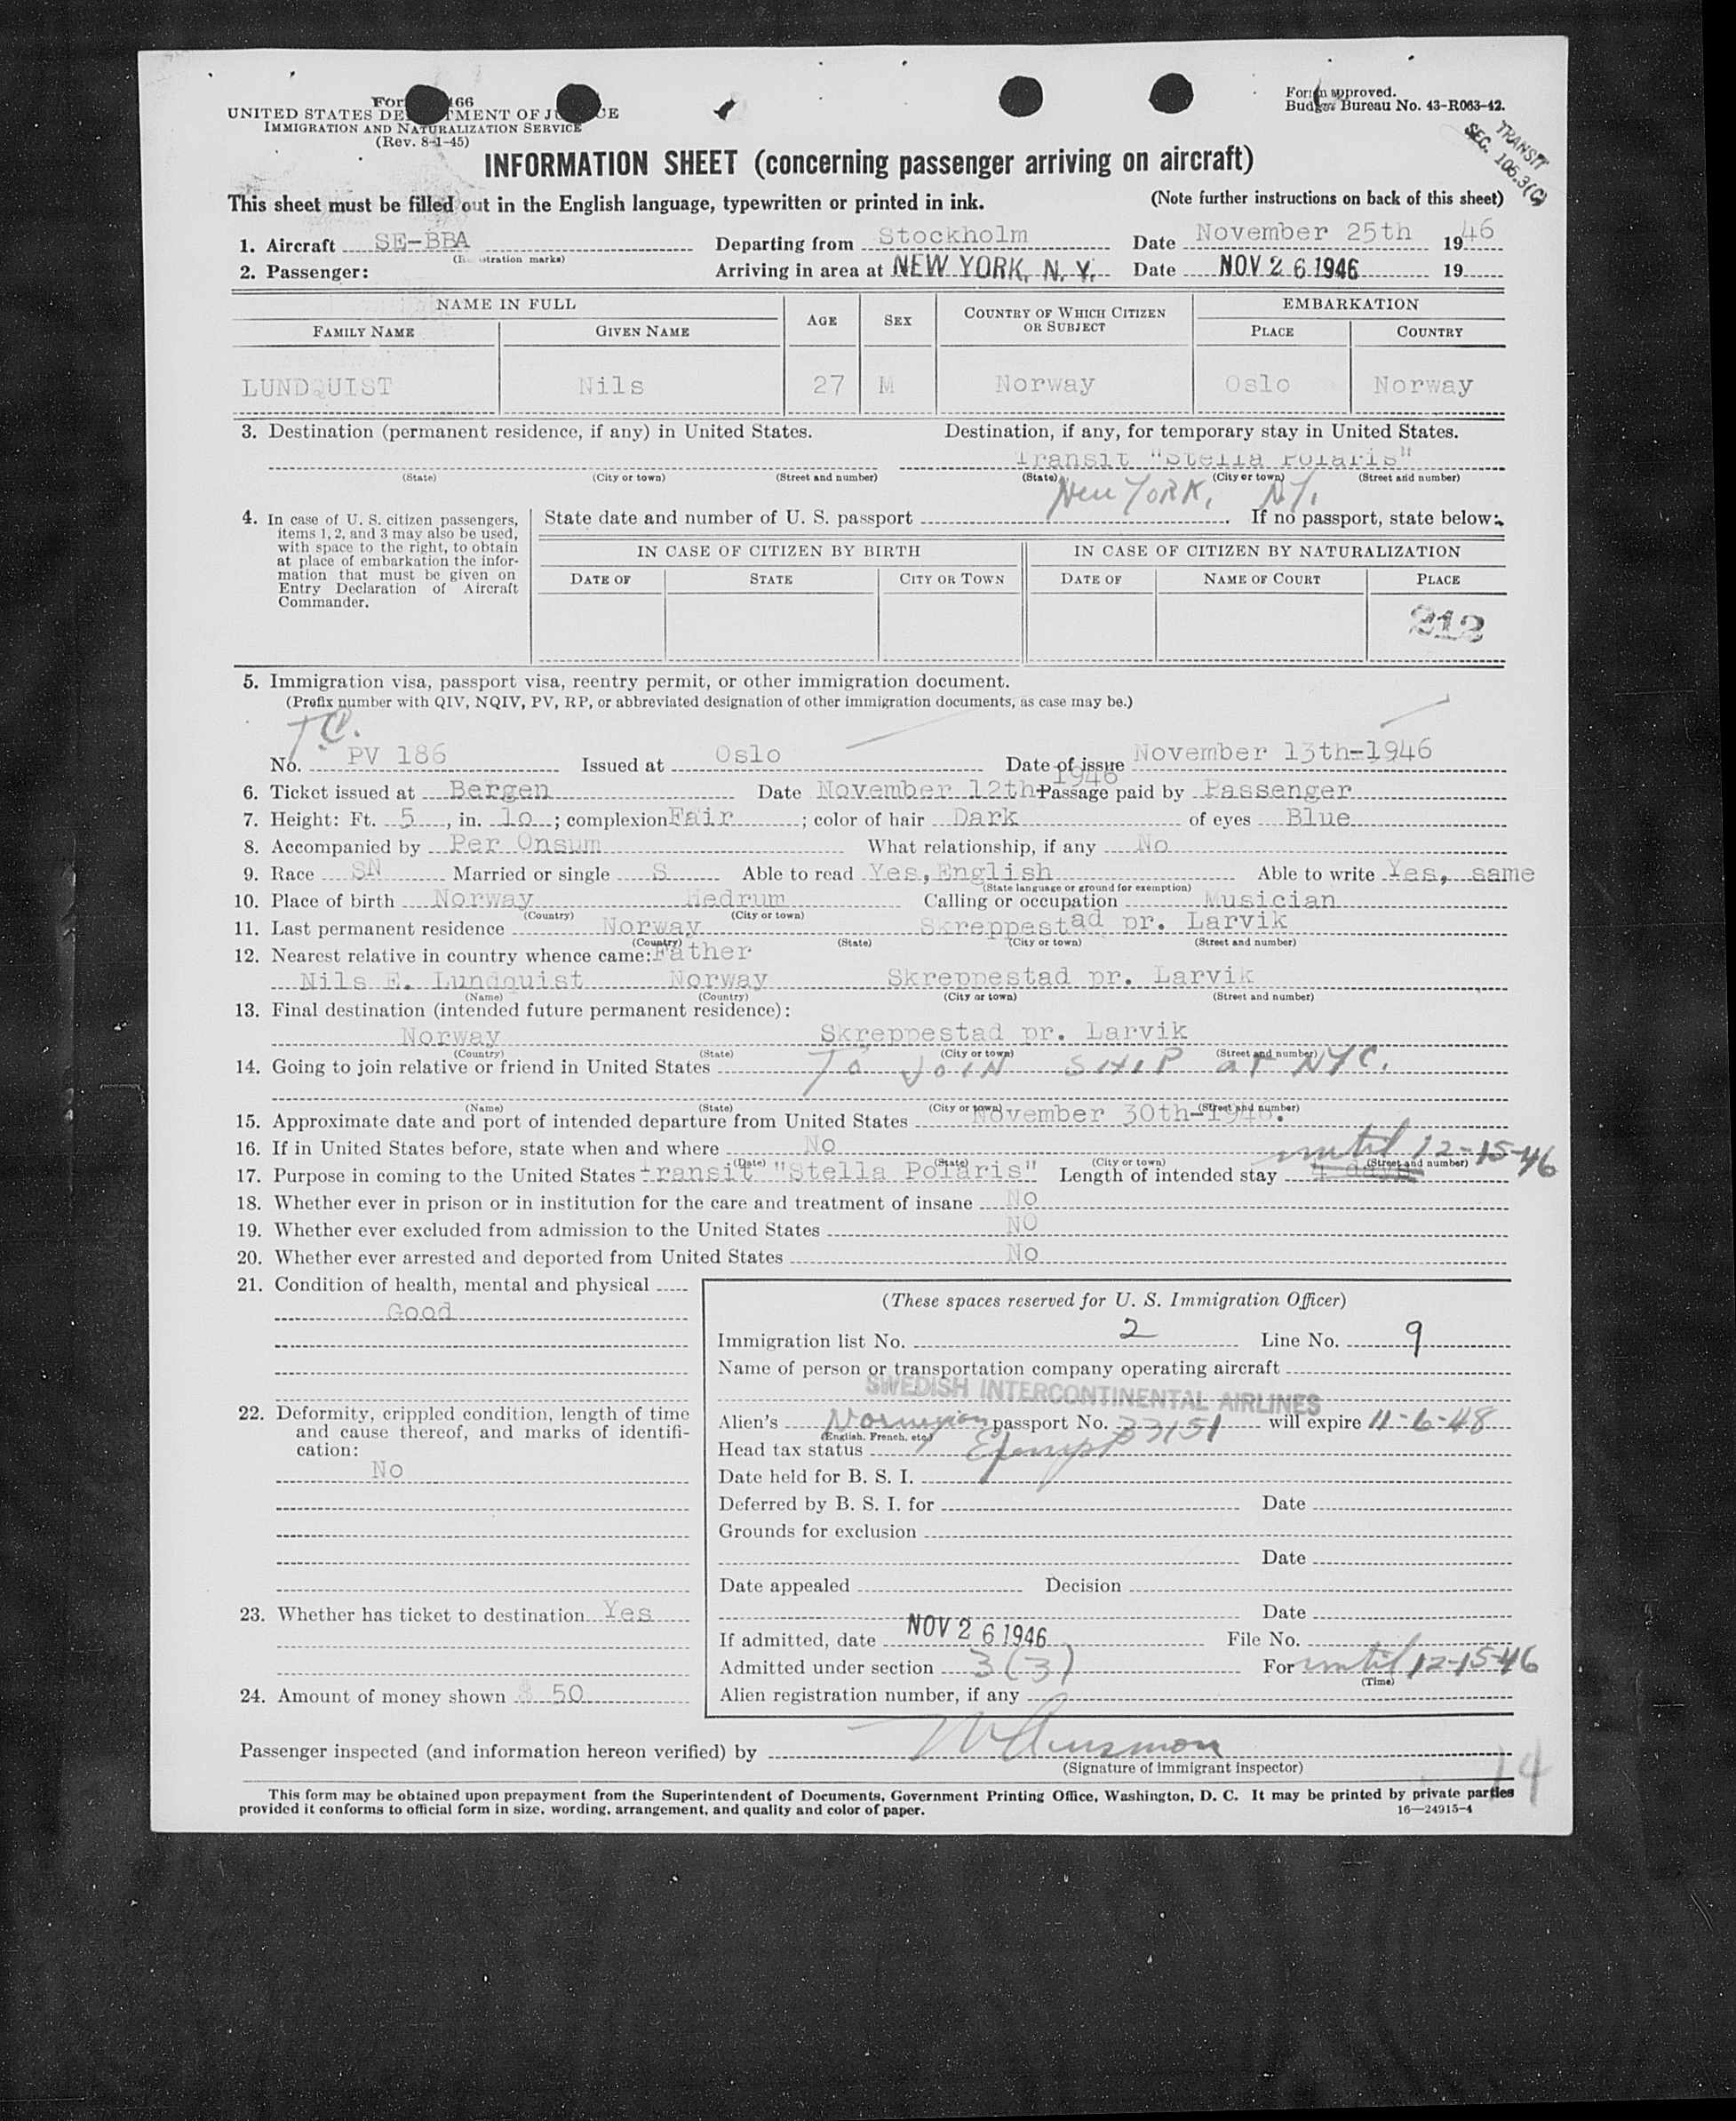 Form approved.
Budget Bureau No. 43-R063-42.
UNITED STATES DEPARTMENT OF JUSTICE
IMMIGRATION AND NATURALIZATION SERVICE
(Rev. 8-1-45)
TRANSIT
SEC. 106.3(C)
INFORMATION SHEET (concerning passenger arriving on aircraft)
This sheet must be filled out in the English language, typewritten or printed in ink. (Note further instructions on back of this sheet)
1. Aircraft SE-BBA Departing from Stockholm Date November 25th 1946
(Registration marks)
2. Passenger: Arriving in area at NEW YORK, N. Y. Date NOV 26 1946 19
NAME IN FULL AGE SEX COUNTRY OF WHICH CITIZEN OR SUBJECT EMBARKATION
FAMILY NAME GIVEN NAME PLACE COUNTRY
LUNDQUIST Nils 27 M Norway Oslo Norway
3. Destination (permanent residence, if any) in United States. Destination, if any, for temporary stay in United States.
Transit "Stella Polaris"
(State) (City or town) (Street and number) (State) (City or town) (Street and number)
New YORK, NY.
4. In case of U. S. citizen passengers, items 1, 2, and 3 may also be used, with space to the right, to obtain at place of embarkation the information that must be given on Entry Declaration of Aircraft Commander.
State date and number of U. S. passport If no passport, state below:
IN CASE OF CITIZEN BY BIRTH IN CASE OF CITIZEN BY NATURALIZATION
DATE OF STATE CITY OR TOWN DATE OF NAME OF COURT PLACE
212
5. Immigration visa, passport visa, reentry permit, or other immigration document.
(Prefix number with QIV, NQIV, PV, RP, or abbreviated designation of other immigration documents, as case may be.)
No. PV 186 Issued at Oslo Date of issue November 13th-1946
6. Ticket issued at Bergen Date November 12th 1946 Passage paid by Passenger
7. Height: Ft. 5, in. 10; complexion Fair; color of hair Dark of eyes Blue
8. Accompanied by Per Onsum What relationship, if any No
9. Race SN Married or single S Able to read Yes, English Able to write Yes, same
(State language or ground for exemption)
10. Place of birth Norway Hedrum Calling or occupation Musician
(Country) (City or town)
11. Last permanent residence Norway Skreppestad pr. Larvik
(Country) (State) (City or town) (Street and number)
12. Nearest relative in country whence came: Father
Nils E. Lundquist Norway Skreppestad pr. Larvik
(Name) (Country) (City or town) (Street and number)
13. Final destination (intended future permanent residence):
Norway Skreppestad pr. Larvik
(Country) (State) (City or town) (Street and number)
14. Going to join relative or friend in United States TO JOIN SHIP at NYC.
(Name) (State) (City or town) (Street and number)
15. Approximate date and port of intended departure from United States November 30th-1946.
16. If in United States before, state when and where No
(Date) (State) (City or town) (Street and number)
until 12-15-46
17. Purpose in coming to the United States transit "Stella Polaris" Length of intended stay 4 days
18. Whether ever in prison or in institution for the care and treatment of insane No
19. Whether ever excluded from admission to the United States NO
20. Whether ever arrested and deported from United States No
21. Condition of health, mental and physical
Good
22. Deformity, crippled condition, length of time and cause thereof, and marks of identification:
No
23. Whether has ticket to destination Yes
24. Amount of money shown $ 50
(These spaces reserved for U. S. Immigration Officer)
Immigration list No. 2 Line No. 9
Name of person or transportation company operating aircraft
SWEDISH INTERCONTINENTAL AIRLINES
Alien's Norwegian passport No. 33151 will expire 11-6-48
(English, French, etc.)
Head tax status Exempt
Date held for B. S. I.
Deferred by B. S. I. for Date
Grounds for exclusion
Date
Date appealed Decision
Date
If admitted, date NOV 26 1946 File No.
Admitted under section 3(3) For until 12-15-46
(Time)
Alien registration number, if any
Passenger inspected (and information hereon verified) by
(Signature of immigrant inspector)
14
This form may be obtained upon prepayment from the Superintendent of Documents, Government Printing Office, Washington, D. C. It may be printed by private parties
provided it conforms to official form in size, wording, arrangement, and quality and color of paper. 16—24915-4